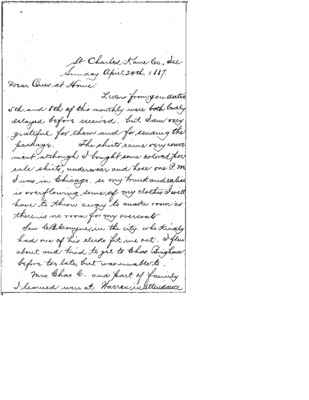 St Charles, Kane Co., Ills.
Sunday April 24th 1887.
Dear Ones at Home:
Letters from you dated
5th and 8th of this monthly were both badly
delayed before received, but I am very
grateful for them and for sending the
package. The shirts came very conve
nient although I bought some colored per
cale shirts, underwear and hose one P.M.
I was in Chicago, so my trunk and valise
is overflowing, some of my clothes I will
have to throw away to make room as
there is no room for my overcoat
Saw in the city, who kindly
had one of his clerks fit me out. I flew
about and tried to get to Chas.
before too late, but was unable to.
Mrs Chas C. and part of family
I learned were at Warren in attendance